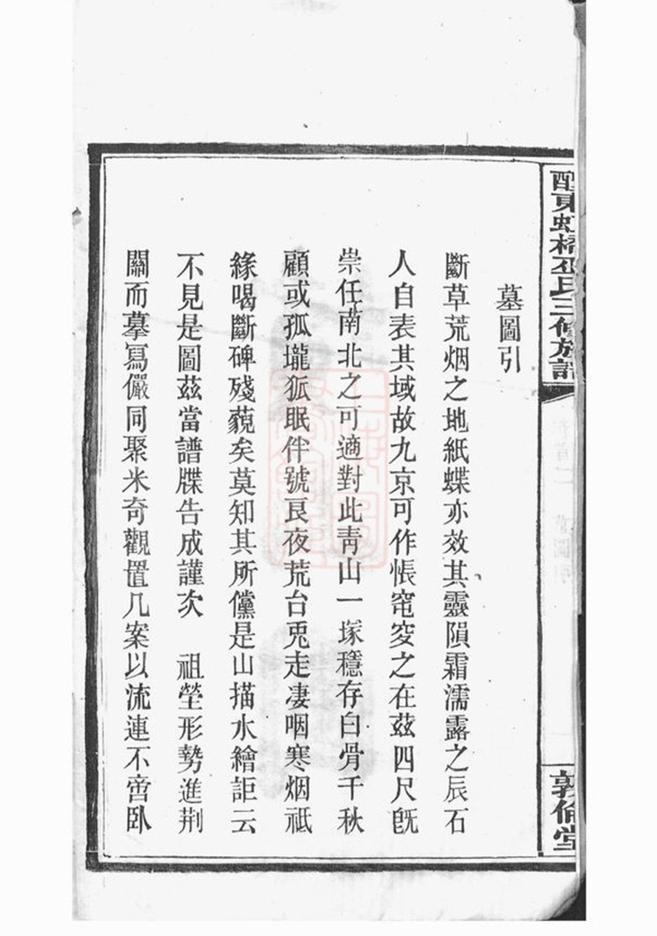 醴東虹橋巫氏三修族譜
敦倫堂
墓圖引
斷草荒烟之地紙蝶亦效其靈隕霜濡露之辰石
人自表其域故九京可作悵窀穸之在兹四尺旣
崇任南北之可適對此青山一塚穩存白骨千秋
顧或孤壠狐眠伴號艮夜荒台兎走凄咽寒烟祗
緣喝斷碑殘藐矣莫知其所儻是山描水繪詎云
不見是圖兹當譜牒告成謹次 祖塋形勢進荆
關而摹寫儼同聚米奇觀置几案以流連不啻臥